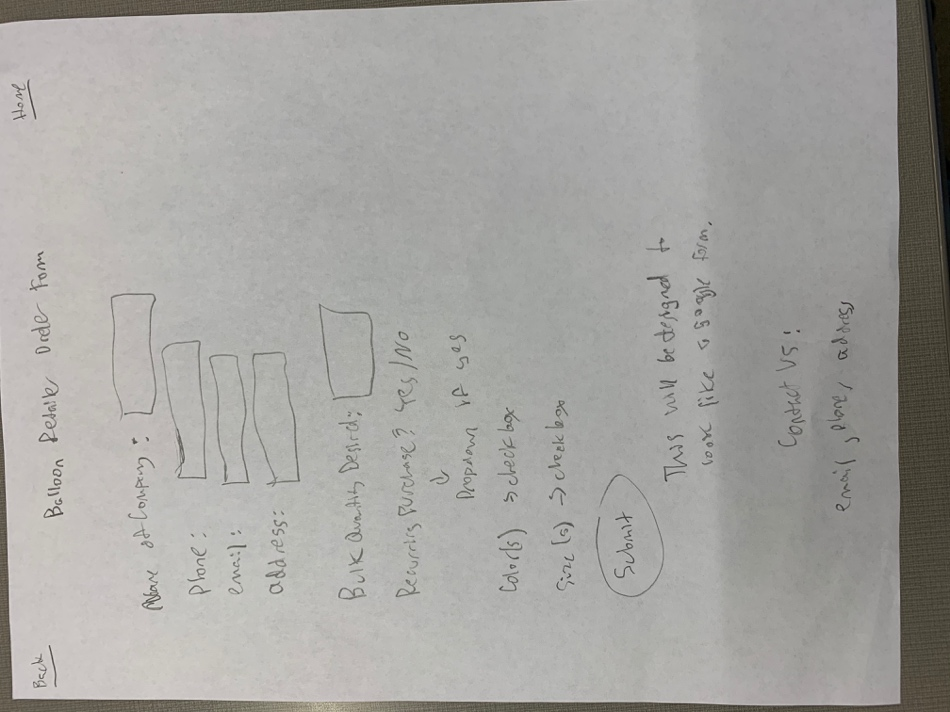 Back
Home
Balloon Retailer Order Form
Name of Company:
Phone:
email:
address:
Bulk Quantity Desired:
Recurring Purchase? Yes/No
Dropdown if yes
Color(s) → check box
Size(s) → check box
Submit
This will be designed to
look like a google form.
Contact Us:
email, phone, address